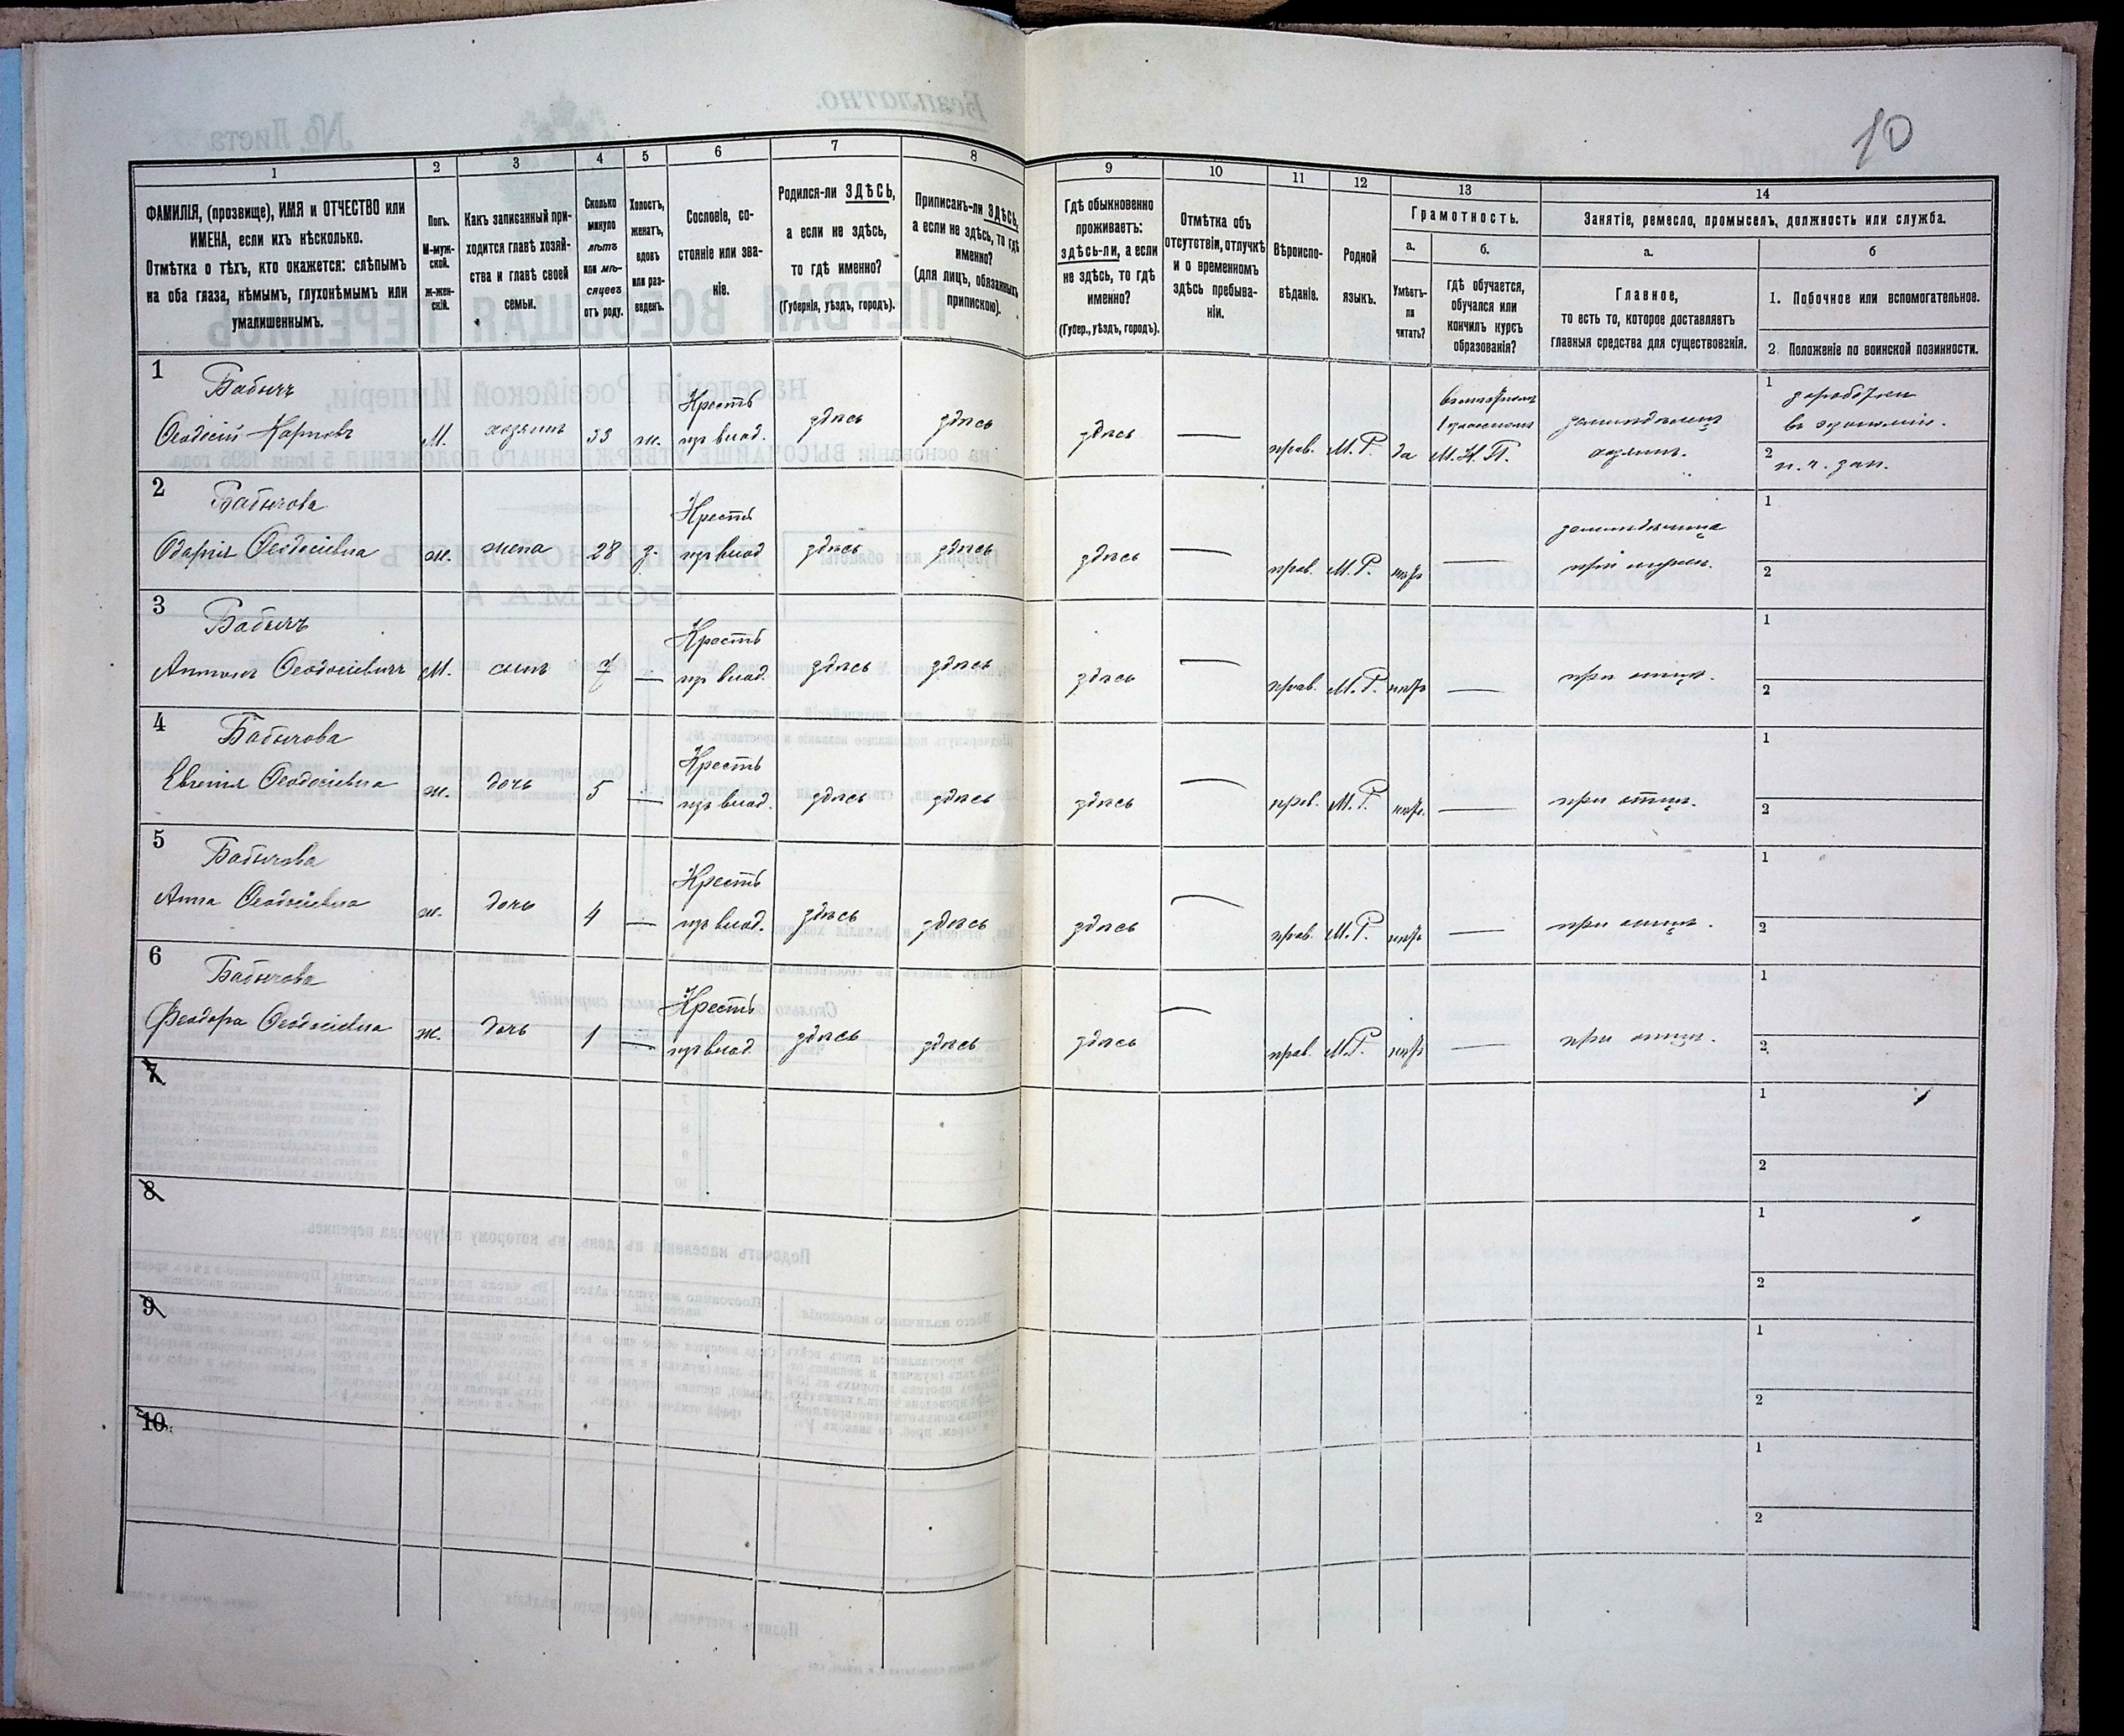 10
1
2
3
4
5
6
7
8
9
10
11
12
13
14
ФАМИЛІЯ, (прозвище), ИМЯ и ОТЧЕСТВО или
ИМЕНА, если ихъ нѣсколько.
Отмѣтка о тѣхъ, кто окажется: слѣпымъ
на оба глаза, нѣмымъ, глухонѣмымъ или
умалишеннымъ.
Полъ.
М-муж-
ской.
ж-жен-
скій.
Какъ записанный при-
ходится главѣ хозяй-
ства и главѣ своей
семьи.
Сколько
минуло
лѣтъ
или мѣ-
сяцевъ
отъ роду.
Холостъ,
женатъ,
вдовъ
или раз-
веденъ.
Сословіе, со-
стояніе или зва-
ніе.
Родился-ли ЗДѢСЬ,
а если не здѣсь,
то гдѣ именно?
(Губернія, уѣздъ, городъ).
Приписанъ-ли ЗДѢСЬ,
а если не здѣсь, то гдѣ
именно?
(для лицъ, обязанныхъ
припискою).
Гдѣ обыкновенно
проживаетъ:
ЗДѢСЬ-ЛИ, а если
не здѣсь, то гдѣ
именно?
(Губер., уѣздъ, городъ).
Отмѣтка объ
отсутствіи, отлучкѣ
и о временномъ
здѣсь пребыва-
ніи.
Вѣроиспо-
вѣданіе.
Родной
языкъ.
Грамотность.
а.
Умѣетъ-
ли
читать?
б.
гдѣ обучается,
обучался или
кончилъ курсъ
образованія?
Занятіе, ремесло, промыселъ, должность или служба.
а.
Главное,
то есть то, которое доставляетъ
главныя средства для существованія.
б
1. Побочное или вспомогательное.
2. Положеніе по воинской повинности.
1
Бабичъ
Ѳеодосій Карповъ
М.
хозяинъ
33
ж.
Крестъ
изъ влад.
здѣсь
здѣсь
здѣсь
прав.
М. Р.
да
1 классномъ
М. Н. П.
земледѣлецъ
хозяинъ.
1
въ экономіи.
2
н. ч. зап.
2
Бабичова
Одарія Ѳеодосіевна
ж.
жена
28
з.
Крестъ
изъ влад
здѣсь
здѣсь
здѣсь
прав.
М. Р.
нѣтъ
при мужѣ.
1
2
3
Бабичъ
Антонъ Ѳеодосіевичъ
М.
сынъ
7
Крестъ
изъ влад.
здѣсь
здѣсь
здѣсь
прав.
М. Р.
нѣтъ
при отцѣ.
1
2
4
Бабичова
Евгенія Ѳеодосіевна
ж.
дочь
5
Крестъ
изъ влад.
здѣсь
здѣсь
здѣсь
прав.
М. Р.
нѣтъ.
при отцѣ.
1
2
5
Бабичова
Анна Ѳеодосіевна
ж.
дочь
4
Крестъ
изъ влад.
здѣсь
здѣсь
здѣсь
прав.
М. Р.
нѣтъ
при отцѣ.
1
2
6
Бабичова
Феодора Ѳеодосіевна
ж.
дочь
1
Крестъ
изъ влад.
здѣсь
здѣсь
здѣсь
прав.
М. Р.
нѣтъ
при отцѣ.
1
2
7
1
2
8
1
2
9
1
2
10
1
2